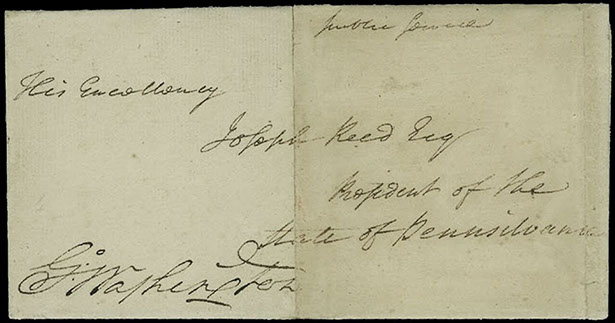 public Service
His Excellency
Joseph Reed Esq
President of the
State of Pennsilvania
G:Washington